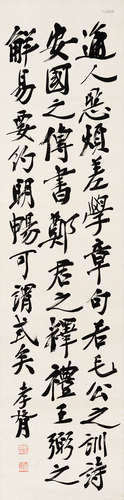 通人惡煩羞學章句若毛公之訓詩
安國之傳書鄭君之釋禮王弼之
解易要約明暢可謂式矣 孝胥